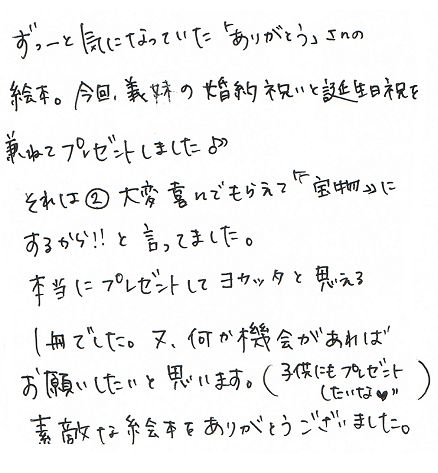 ずっーと気になっていた「ありがとう」さんの
絵本。今回、義妹の婚約祝いと誕生日祝を
兼ねてプレゼントしました♪
それは②大変喜んでもらえて『宝物』に
するから!!と言ってました。
本当にプレゼントしてヨカッタと思える
1冊でした。又、何か機会があれば
お願いしたいと思います。(子供にもプレゼント
したいな♥")
素敵な絵本をありがとうございました。